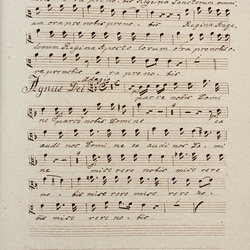 ora pro nobis pro no - bis Regina Sanctorum omni
um ora pro nobis pro no - bis. Regina Ange
lorum Regina Aposto lorum ora pro nobis
ra pro nobis ra pro no - bis
Adagio
Agnus Dei parce nobis Domi
ne parce nobis Domine ex
audi nos Domi ne ex audi nos Do - mi
ne mise rere nobis mise rere
no - bis mise rere mise rere no
bis mise rere no - bis